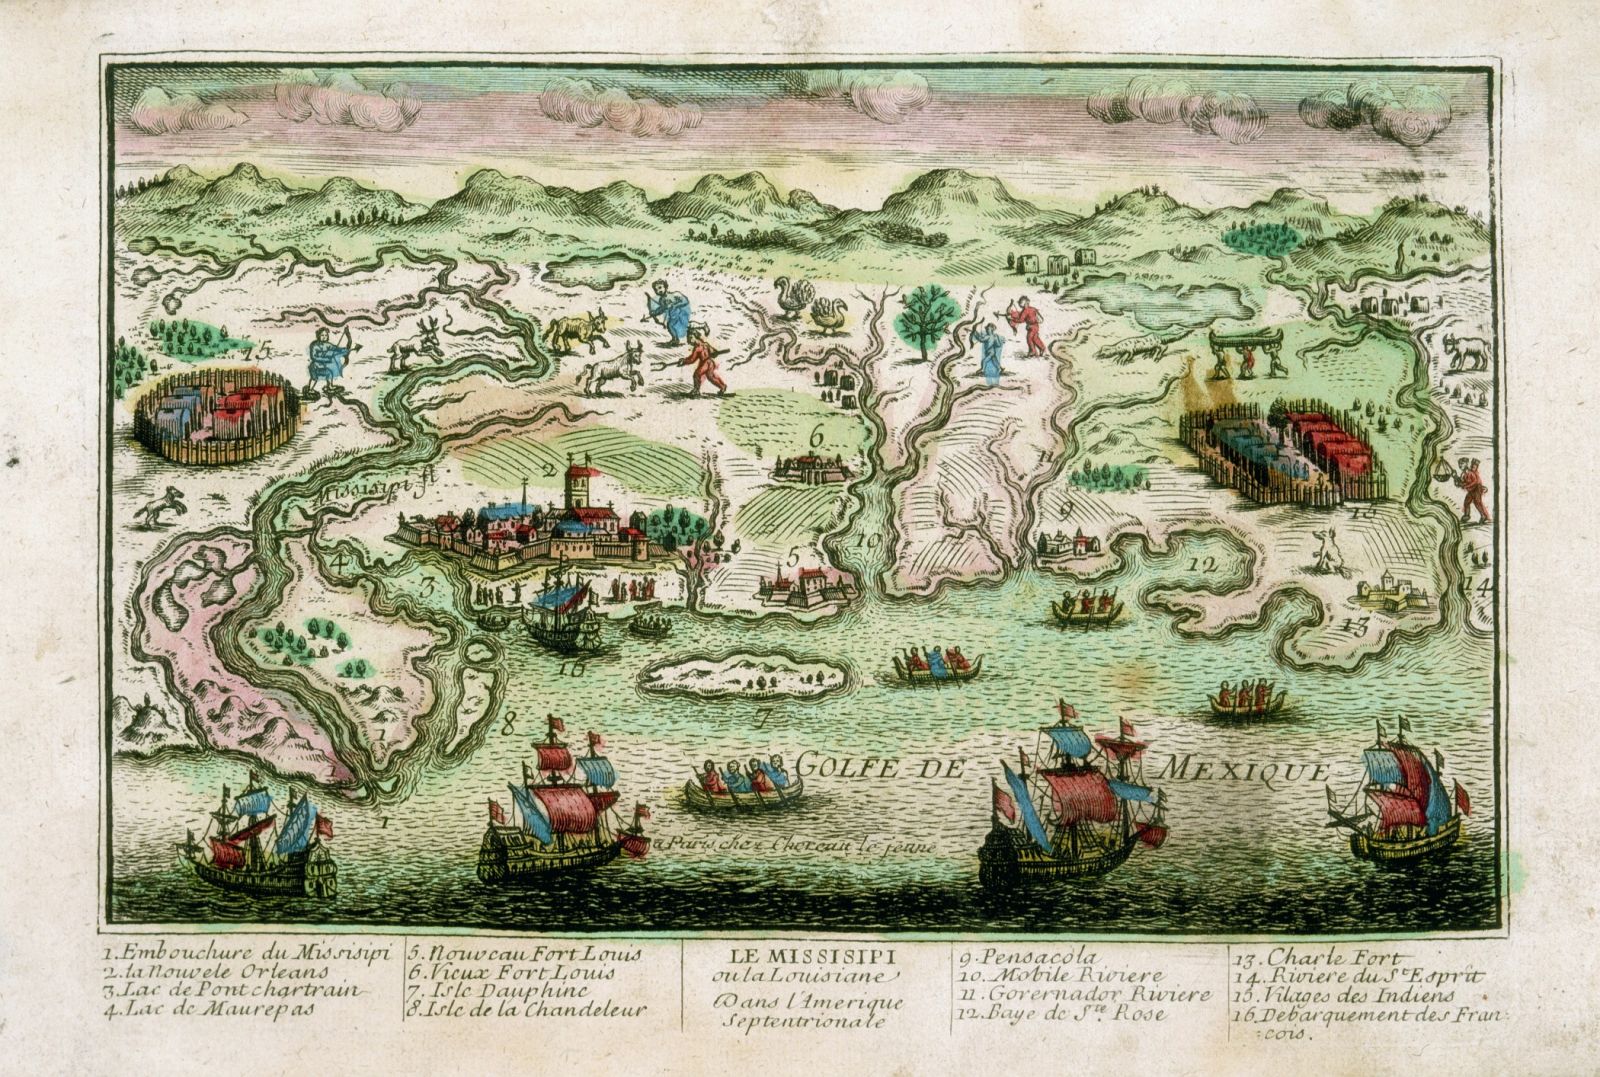 15
6
2
Missisipi fl
11
9
15
5
10
4
3
12
14
13
16
7
8
1
GOLFE DE MEXIQUE
1
a Paris, chez Chereau le jeune
1. Embouchure du Missisipi
2. la Nouvele Orleans
3. Lac de Pontchartrain
4. Lac de Maurepas
5. Nouveau Fort Louis
6. Vieux Fort Louis
7. Isle Dauphine
8. Isle de la Chandeleur
LE MISSISIPI
ou la Louisiane
Dans l'Amerique
Septentrionale
9. Pensacola
10. Mobile Riviere
11. Governador Riviere
12. Baye de Ste. Rose
13. Charle Fort
14. Riviere du St Esprit
15. Vilages des Indiens
16. Debarquement des Fran=
=cois.